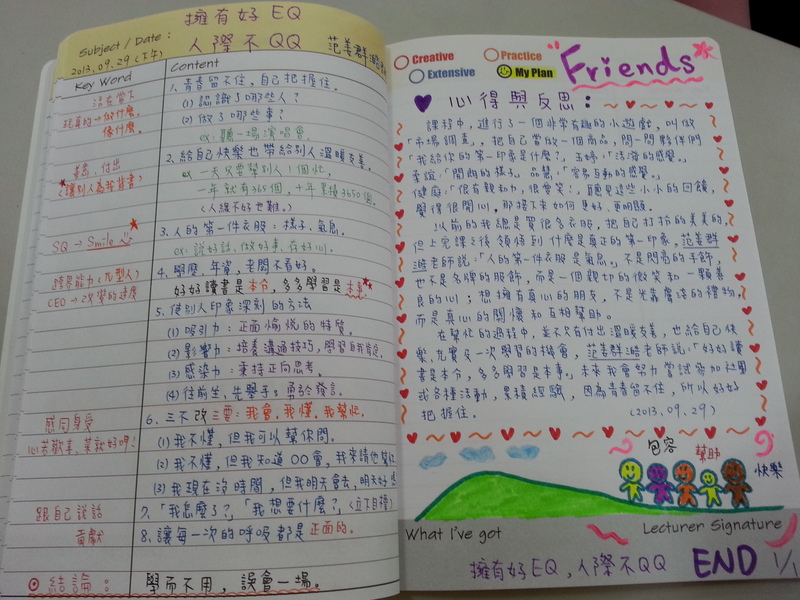 擁有好EQ
Subject / Date : 人際不QQ 范姜群澔老師
2013.09.29(下午)
Key Word Content
活在當下
玩真的→做什麼
像什麼.
善念.付出
(讓別人為我背書)
SQ→Smile
跨界能力(九型人)
CEO→改變的速度
感同身受
跟自己說話
貢獻
1. 青春留不住,自己把握住.
(1) 認識了哪些人?
(2) 做了哪些事?
ex: 聽一場演唱會.
2. 給自己快樂也帶給別人溫暖友善.
ex 一天只要幫別人1個忙,
一年就有365個,十年累積3650個.
(人緣不好也難.)
3. 人的第一件衣服:樣子、氣息.
ex: 說好話.做好事.存好心.
4. 學歷.年資,老闆不看好.
好好讀書是本分,多多學習是本事.
5. 使別人印象深刻的方法
(1) 吸引力:正面愉悅的特質.
(2) 影響力:培養溝通技巧,學習自我肯定.
(3) 感染力:秉持正向思考.
(4) 往前坐.先舉手.勇於發言.
6. 三不改三要:我會.我懂.我幫忙.
(1) 我不懂,但我可以幫你問.
(2) 我不懂,但我知道OO會,我來請他幫忙
(3) 我現在沒時間,但我明天會去,明天好
7. 「我怎麼了?」「我想要什麼?」(立下目標)
8. 讓每一次的呼吸都是正面的.
⊙結論: 學而不用,誤會一場.
Creative Practice
Extensive My Plan
Friends
心得與反思:
課程中,進行了一個非常有趣的小遊戲,叫做
「市場調查」,把自己當做一個商品,問一問夥伴們
「我給你的第一印象是什麼?」,玉婷:「活潑的感覺」.
「悶悶的樣子」.品慧:「常多互動的感覺」.
健庭:「很有親和力,很愛笑」,聽見這些小小的回饋,
覺得很開心,那接下來如何更好、更明顯.
以前的我總是買很多衣服,把自己打扮的美美的,
但上完課之後領悟到什麼是真正的第一印象.范姜群
澔老師說:「人的第一件衣服是氣息」,不是閃亮的手飾,
也不是名牌的服飾,而是一個親切的微笑和一顆善
良的心;想擁有真心的朋友,不是光靠魔法的禮物,
而是真心的關懷和互相幫助.
在幫忙的過程中,並不只有付出溫暖友善,也給自己快
樂,尤實及一次學習的機會,范姜群澔老師說:「好好讀
書是本分,多多學習是本事.未來我會努力嘗試參加社團
或各種活動,累積經驗,因為青春留不住,所以好好
把握住. (2013.09.29)
包容
幫助
快樂
What I've got Lecturer Signature
擁有好EQ,人際不QQ END 1/1